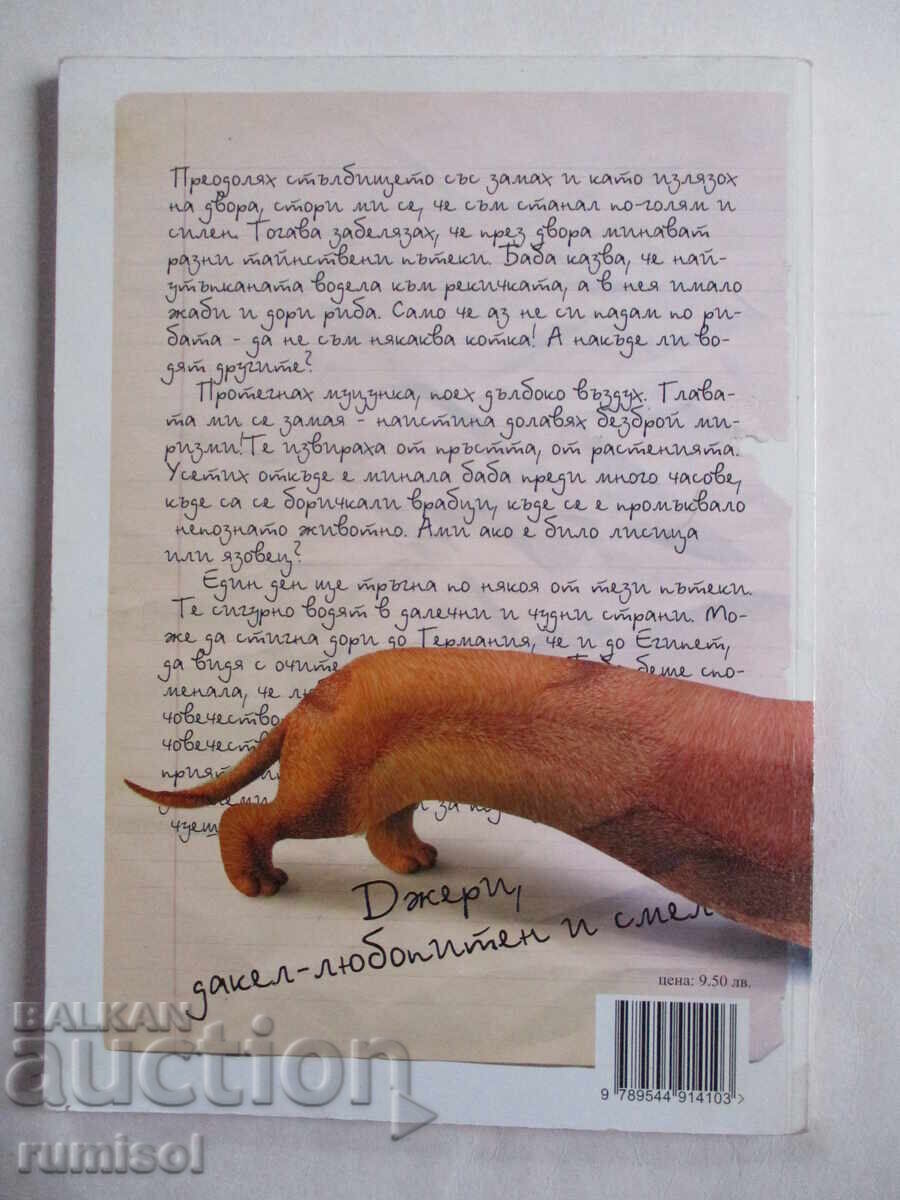 Преодолях стълбището със замах и като излязох
на двора, стори ми се, че съм станал по-голям и
силен. Тогава забелязах, че през двора минават
разни тайнствени пътеки. Баба казва, че най-
утъпканата водела към рекичката, а в нея имало
жаби и дори риба. Само че аз не си падам по ри-
бата - да не съм някаква котка! А накъде ли во-
дят другите?
Протегнах муцунка, поех дълбоко въздух. Глава-
та ми се замая - наистина долавях безброй ми-
ризми! Те извираха от пръстта, от растенията.
Усетих откъде е минала баба преди много часове,
къде са се боричкали врабци, къде се е промъквало
непознато животно. Ами ако е било лисица
или язовец?
Един ден ще тръгна по някоя от тези пътеки.
Те сигурно водят в далечни и чудни страни. Мо-
же да стигна дори до Германия, че и до Египет,
да видя с очите беше спо-
менала, че
човечество
човечеств
прият
за
чуеш
Джери,
дакел-любопитен и смел
цена: 9.50 лв.
9 789544 914103 >
BALKAN
auction
rumisol